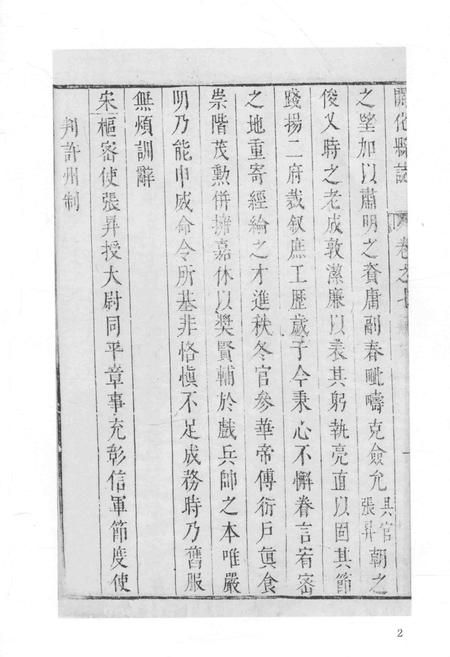 開化縣誌 卷之七
之望加以肅明之資庸副春毗疇克僉允具官張昇朝之
俊乂時之老成敦潔廉以表其躬執亮直以固其節
踐揚二府裁敘庶工歷歲于今秉心不懈眷言宥密
之地重寄經綸之才進秩冬官參華帝傅衍戶眞食
崇階茂勳併擁嘉休以奬賢輔於戲兵帥之本唯嚴
明乃能申威命令所基非恪慎不足成務時乃舊服
無煩訓辭
宋樞密使張昇授大尉同平章事充彰信軍節度使
判許州制
2